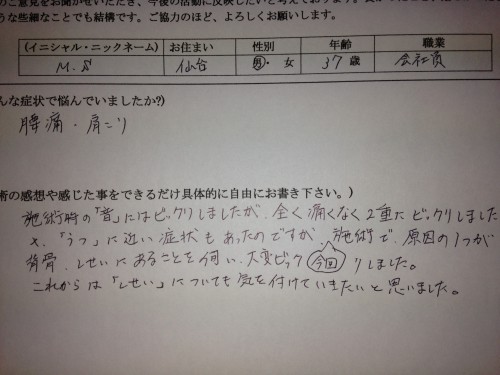 のご意見をお聞かせいただき、今後の活動に反映したいと考えております。
うな些細なことでも結構です。ご協力のほど、よろしくお願いします。
(イニシャル・ニックネーム) お住まい 性別 年齢 職業
M.S 仙台 男・女 37歳 会社員
んな症状で悩んでいましたか?)
腰痛・肩こり
術の感想や感じた事をできるだけ具体的に自由にお書き下さい。)
施術時の「音」にはビックリしましたが、全く痛くなく2重にビックリしました
又、「うつ」に近い症状もあったのですが 施術で、原因の1つが
背骨、しせいにあることを伺い、大変ビック 今回 りしました。
これからは「しせい」についても気を付けていきたいと思いました。